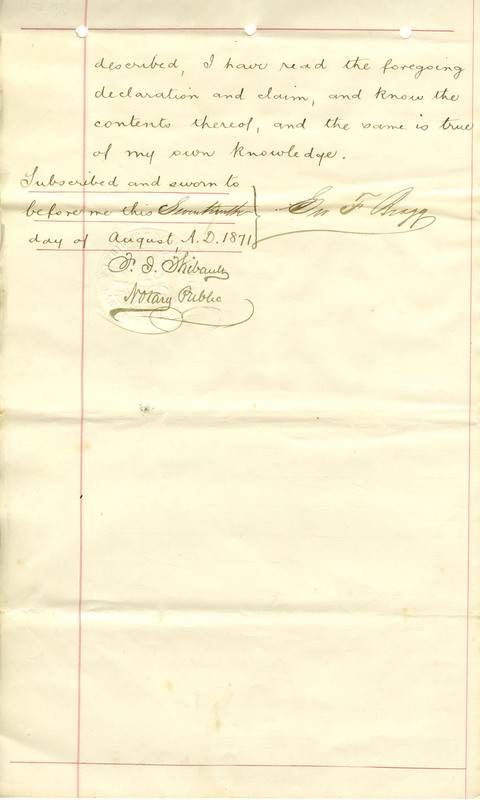 described, I have read the foregoing
declaration and claim, and know the
contents thereof, and the same is true
of my own knowledge.
Subscribed and sworn to
before me this Seventeenth
day of August, A.D. 1871
F. J. Thibault
Notary Public
F. Bragg